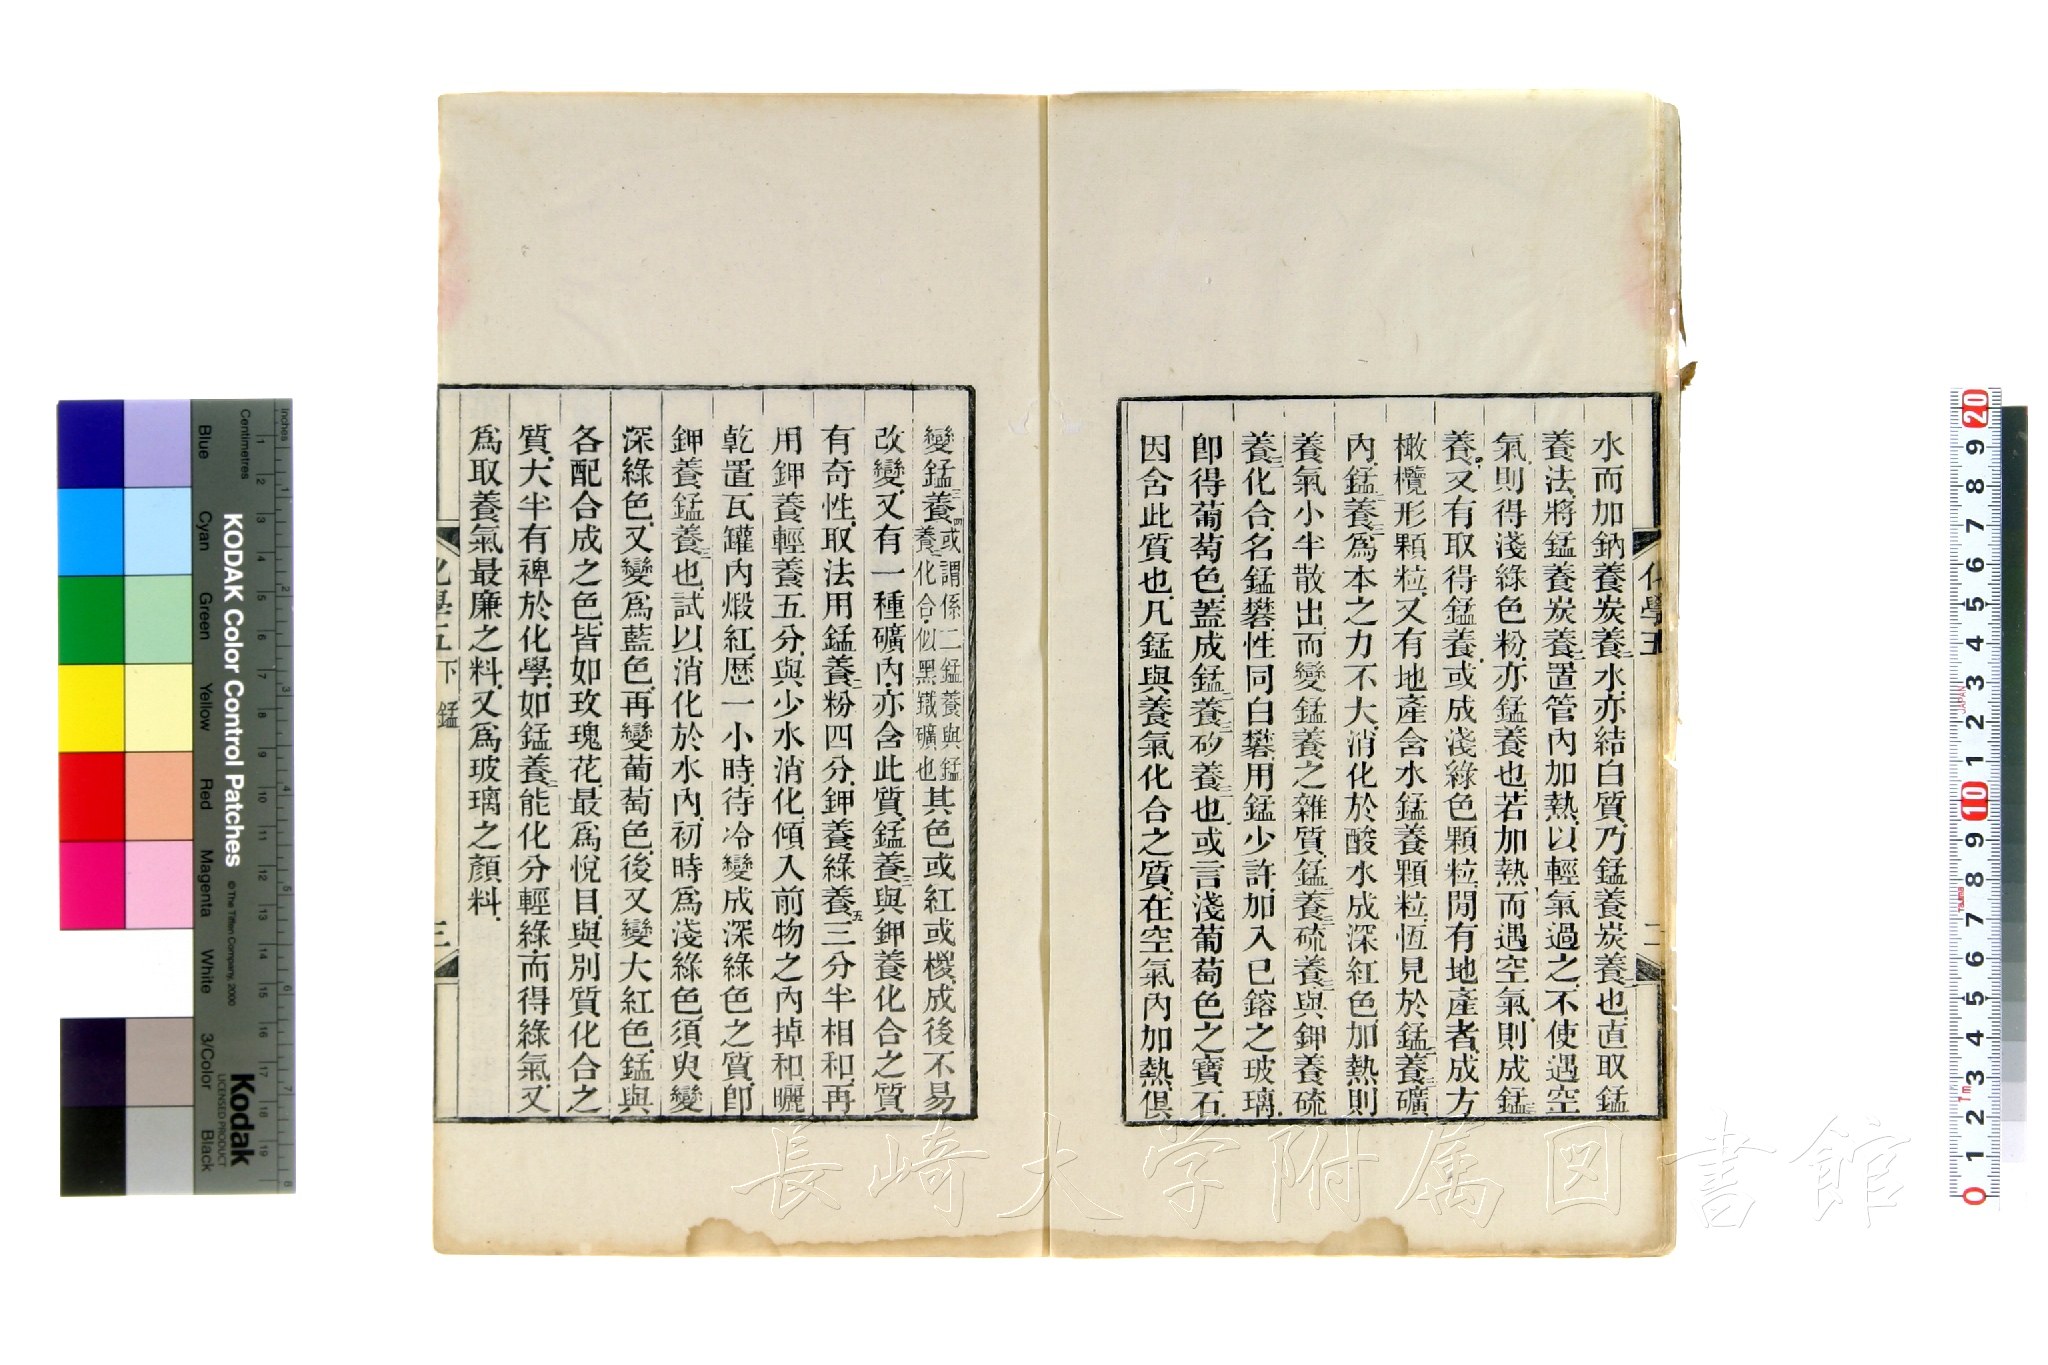 水而加鈉養炭養二水亦結白質乃錳養炭養二也直取錳
養法將錳養炭養二置管內加熱以輕氣過之不使遇空
氣則得淺綠色粉亦錳養也若加熱而遇空氣則成錳三
養四又有取得錳養或成淺綠色顆粒閒有地產者成方
橄欖形顆粒又有地產含水錳養顆粒恆見於錳二養三礦
內錳二養三爲本之力不大消化於酸水成深紅色加熱則
養氣小半散出而變錳養之雜質錳二養三硫養三與鉀養硫
養三化合名錳礬性同白礬用錳少許加入已鎔之玻璃
卽得葡萄色蓋成錳二養三矽養三也或言淺葡萄色之寶石
因含此質也凡錳與養氣化合之質在空氣內加熱俱
變錳三養四或謂係二錳養與錳
養二化合似黑鐵礦也其色或紅或椶成後不易
改變又有一種礦內亦含此質錳養三與鉀養化合之質
有奇性取法用錳養二粉四分鉀養綠養五三分半相和再
用鉀養輕養五分與少水消化傾入前物之內掉和曬
乾置瓦罐內煅紅歷一小時待冷變成深綠色之質卽
鉀養錳養三也試以消化於水內初時爲淺綠色須臾變
深綠色又變爲藍色再變葡萄色後又變大紅色錳與
各配合成之色皆如玫瑰花最爲悅目與別質化合之
質大半有裨於化學如錳養二能化分輕綠而得綠氣又
爲取養氣最廉之料又爲玻璃之顏料
化學五
二
化學五 下 錳
三
長崎大学附属図書館
KODAK Color Control Patches
© The Tiffen Company, 2000
Kodak
LICENSED PRODUCT
Blue
Cyan
Green
Yellow
Red
Magenta
White
3/Color
Black
Centimetres
Inches
1 2 3 4 5 6 7 8 9 10 11 12 13 14 15 16 17 18 19
1 2 3 4 5 6 7 8
0 1 2 3 4 5 6 7 8 9 10 1 2 3 4 5 6 7 8 9 20
JAPAN